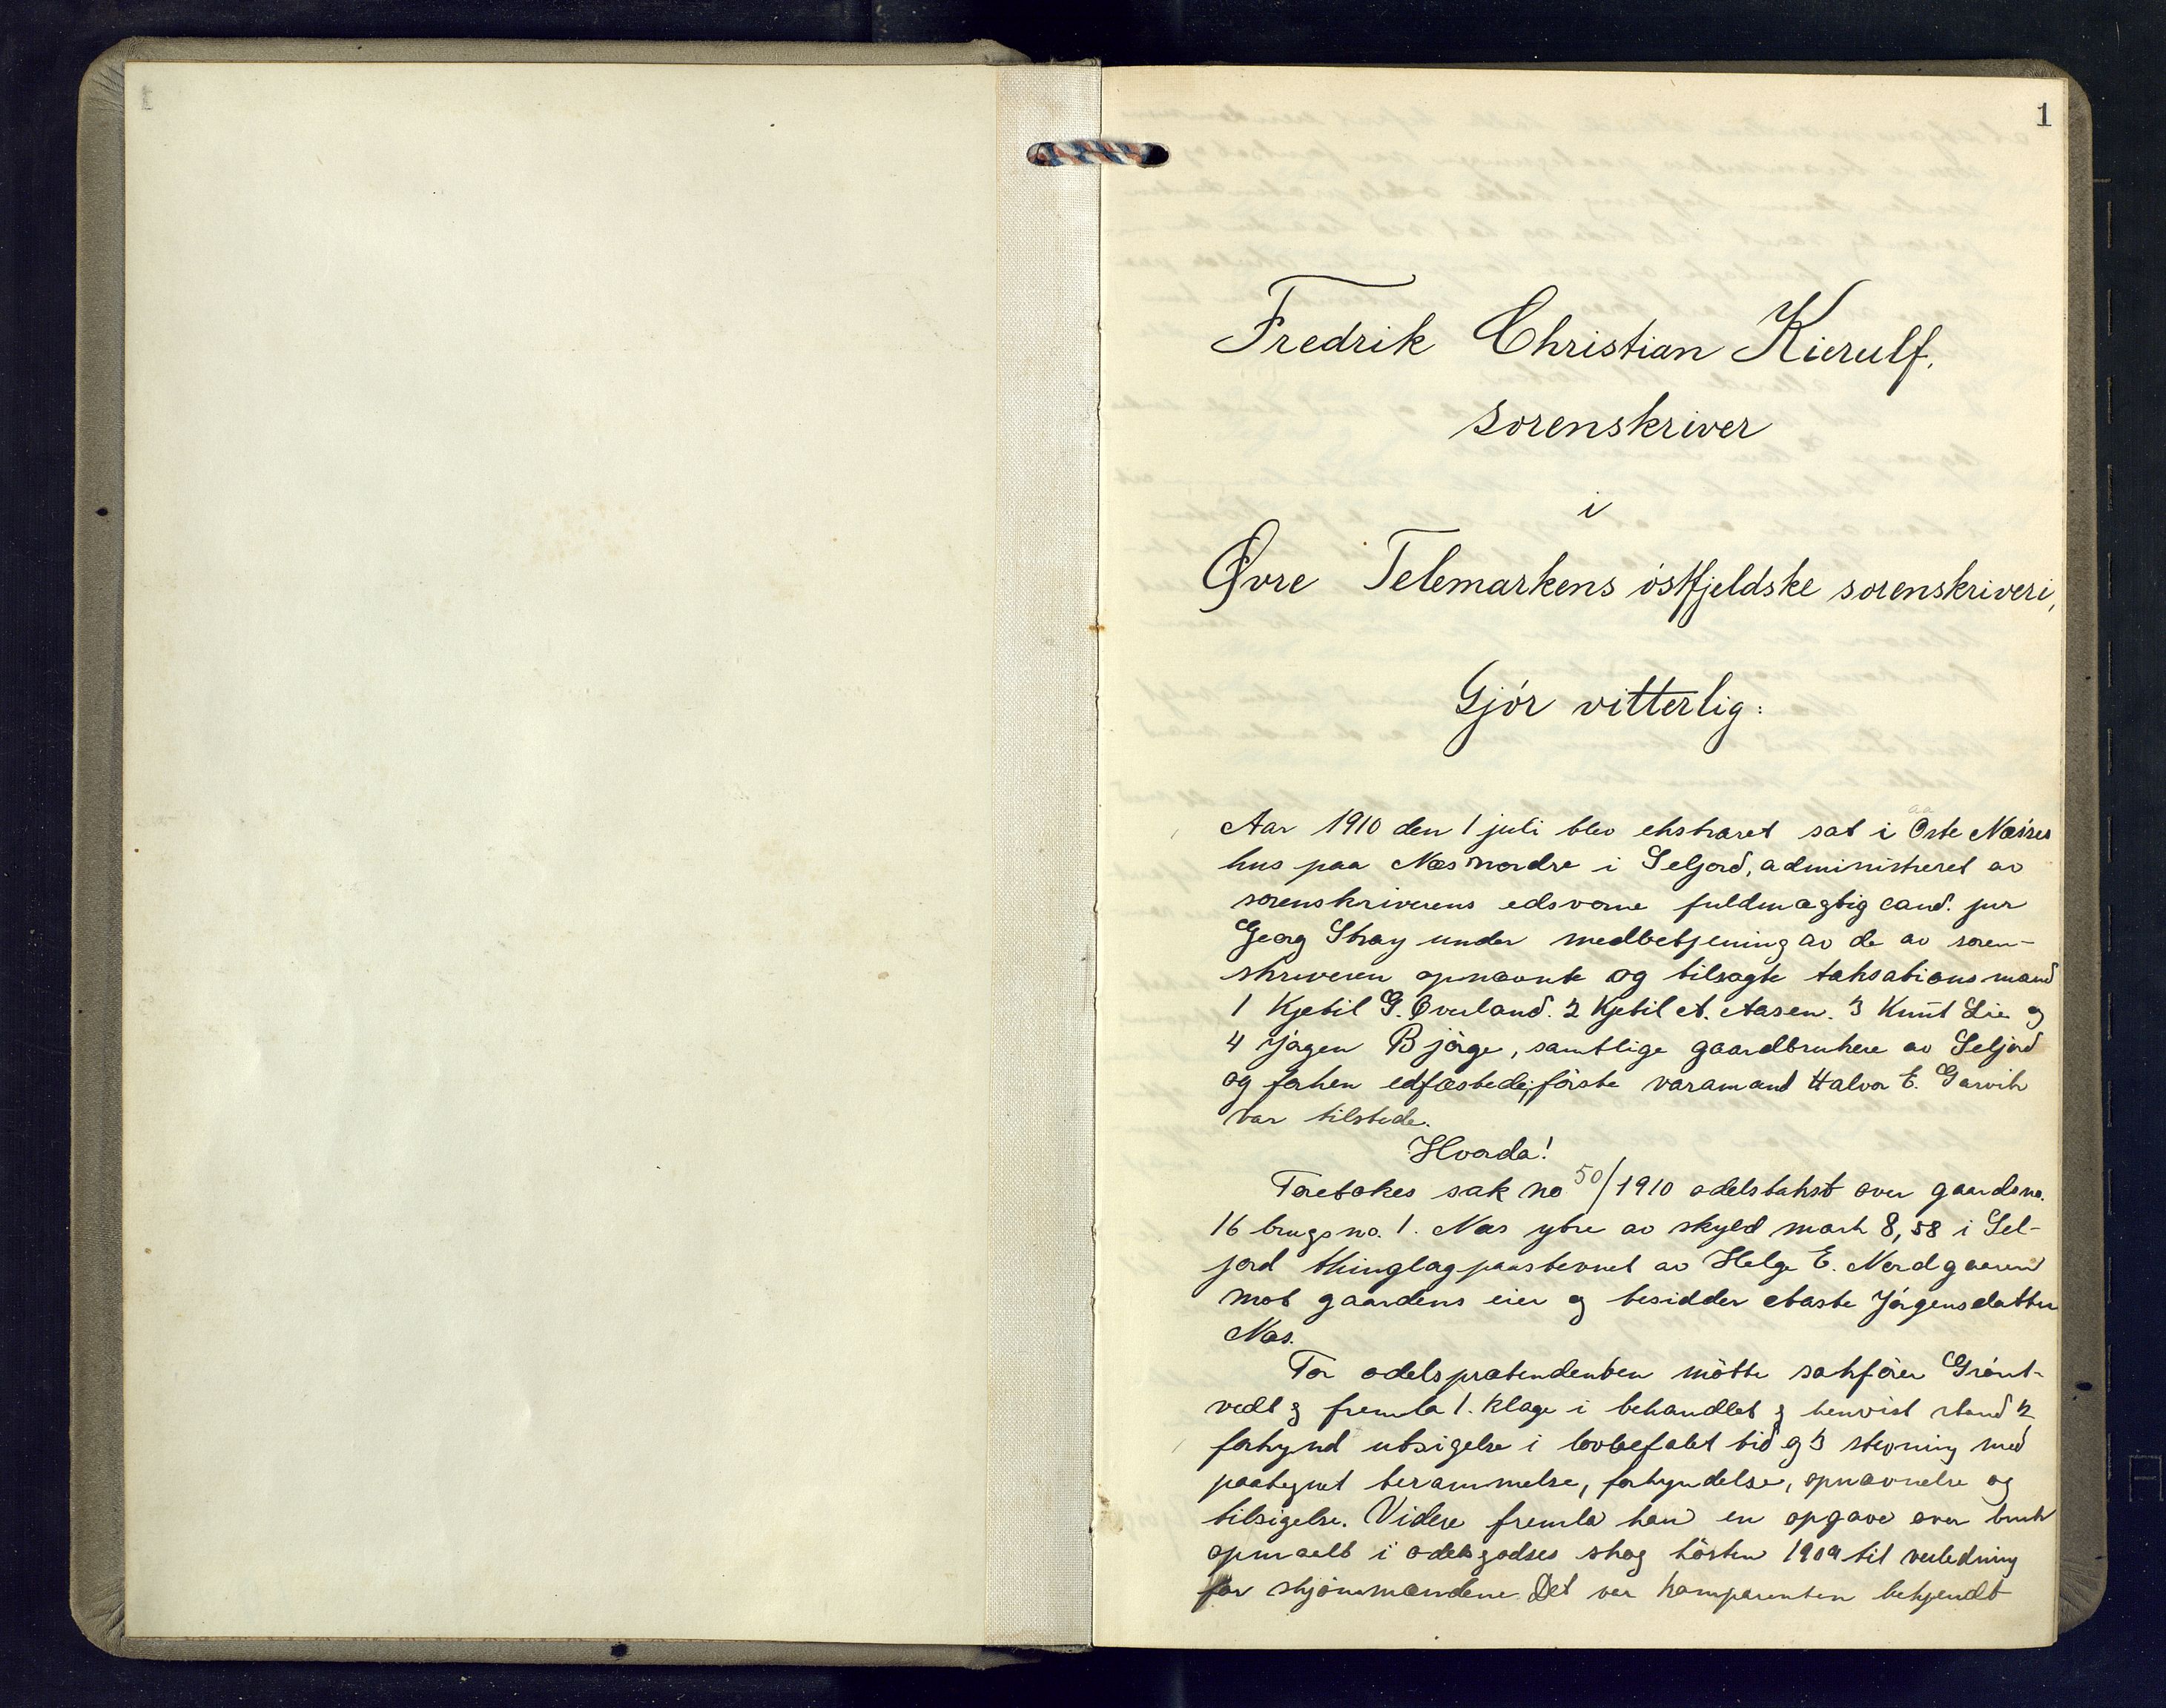 1
Fredrik Christian Kierulf.
sorenskriver
i
Øvre Telemarkens östfjeldske sorenskriveri,
Gjör vitterlig:
Aar 1910 den 1 juli blev ekstraret sat i Aaste Næsses
hus paa Næs nordre i Seljord, administreret av
sorenskriverens edsvorne fuldmægtig cand. jur
Georg Stray under medbetjening av de av soren-
skriveren opnævnte og tilsagte taksationsmænd
1 Kjetil G. Överland. 2 Kjetil A. Aasen. 3 Knut Lie og
4 Jörgen Björge, samtlige gaardbrukere av Seljord
og forhen edfæstede; förste varamand Halvor E. Garvik
var tilstede.
Hvorda!
Foretokes sak no 50/1910 odelstakst over gaardsno.
16 brugsno. 1. Næs ytre av skyld mark 8,58 i Sel-
jord thinglag paastevnet av Helge E. Nordgaarden
mot gaardens eier og besidder Aaste Jörgensdatter
Næs.
For odelsprætendenten mötte sakförer Grönt-
vedt og fremla 1. klage i behandlet og henvist stand 2
forkynd utsigelse i lovbefalet tid og 3 stevning med
paategnet berammelse, forkyndelse, opnævnelse og
tilsigelse. Videre fremla han en opgave over bruk
opmaalt i odelsgodses skog hösten 1909 til veiledning
for skjönsmændene. Det var komparenten bekjendt